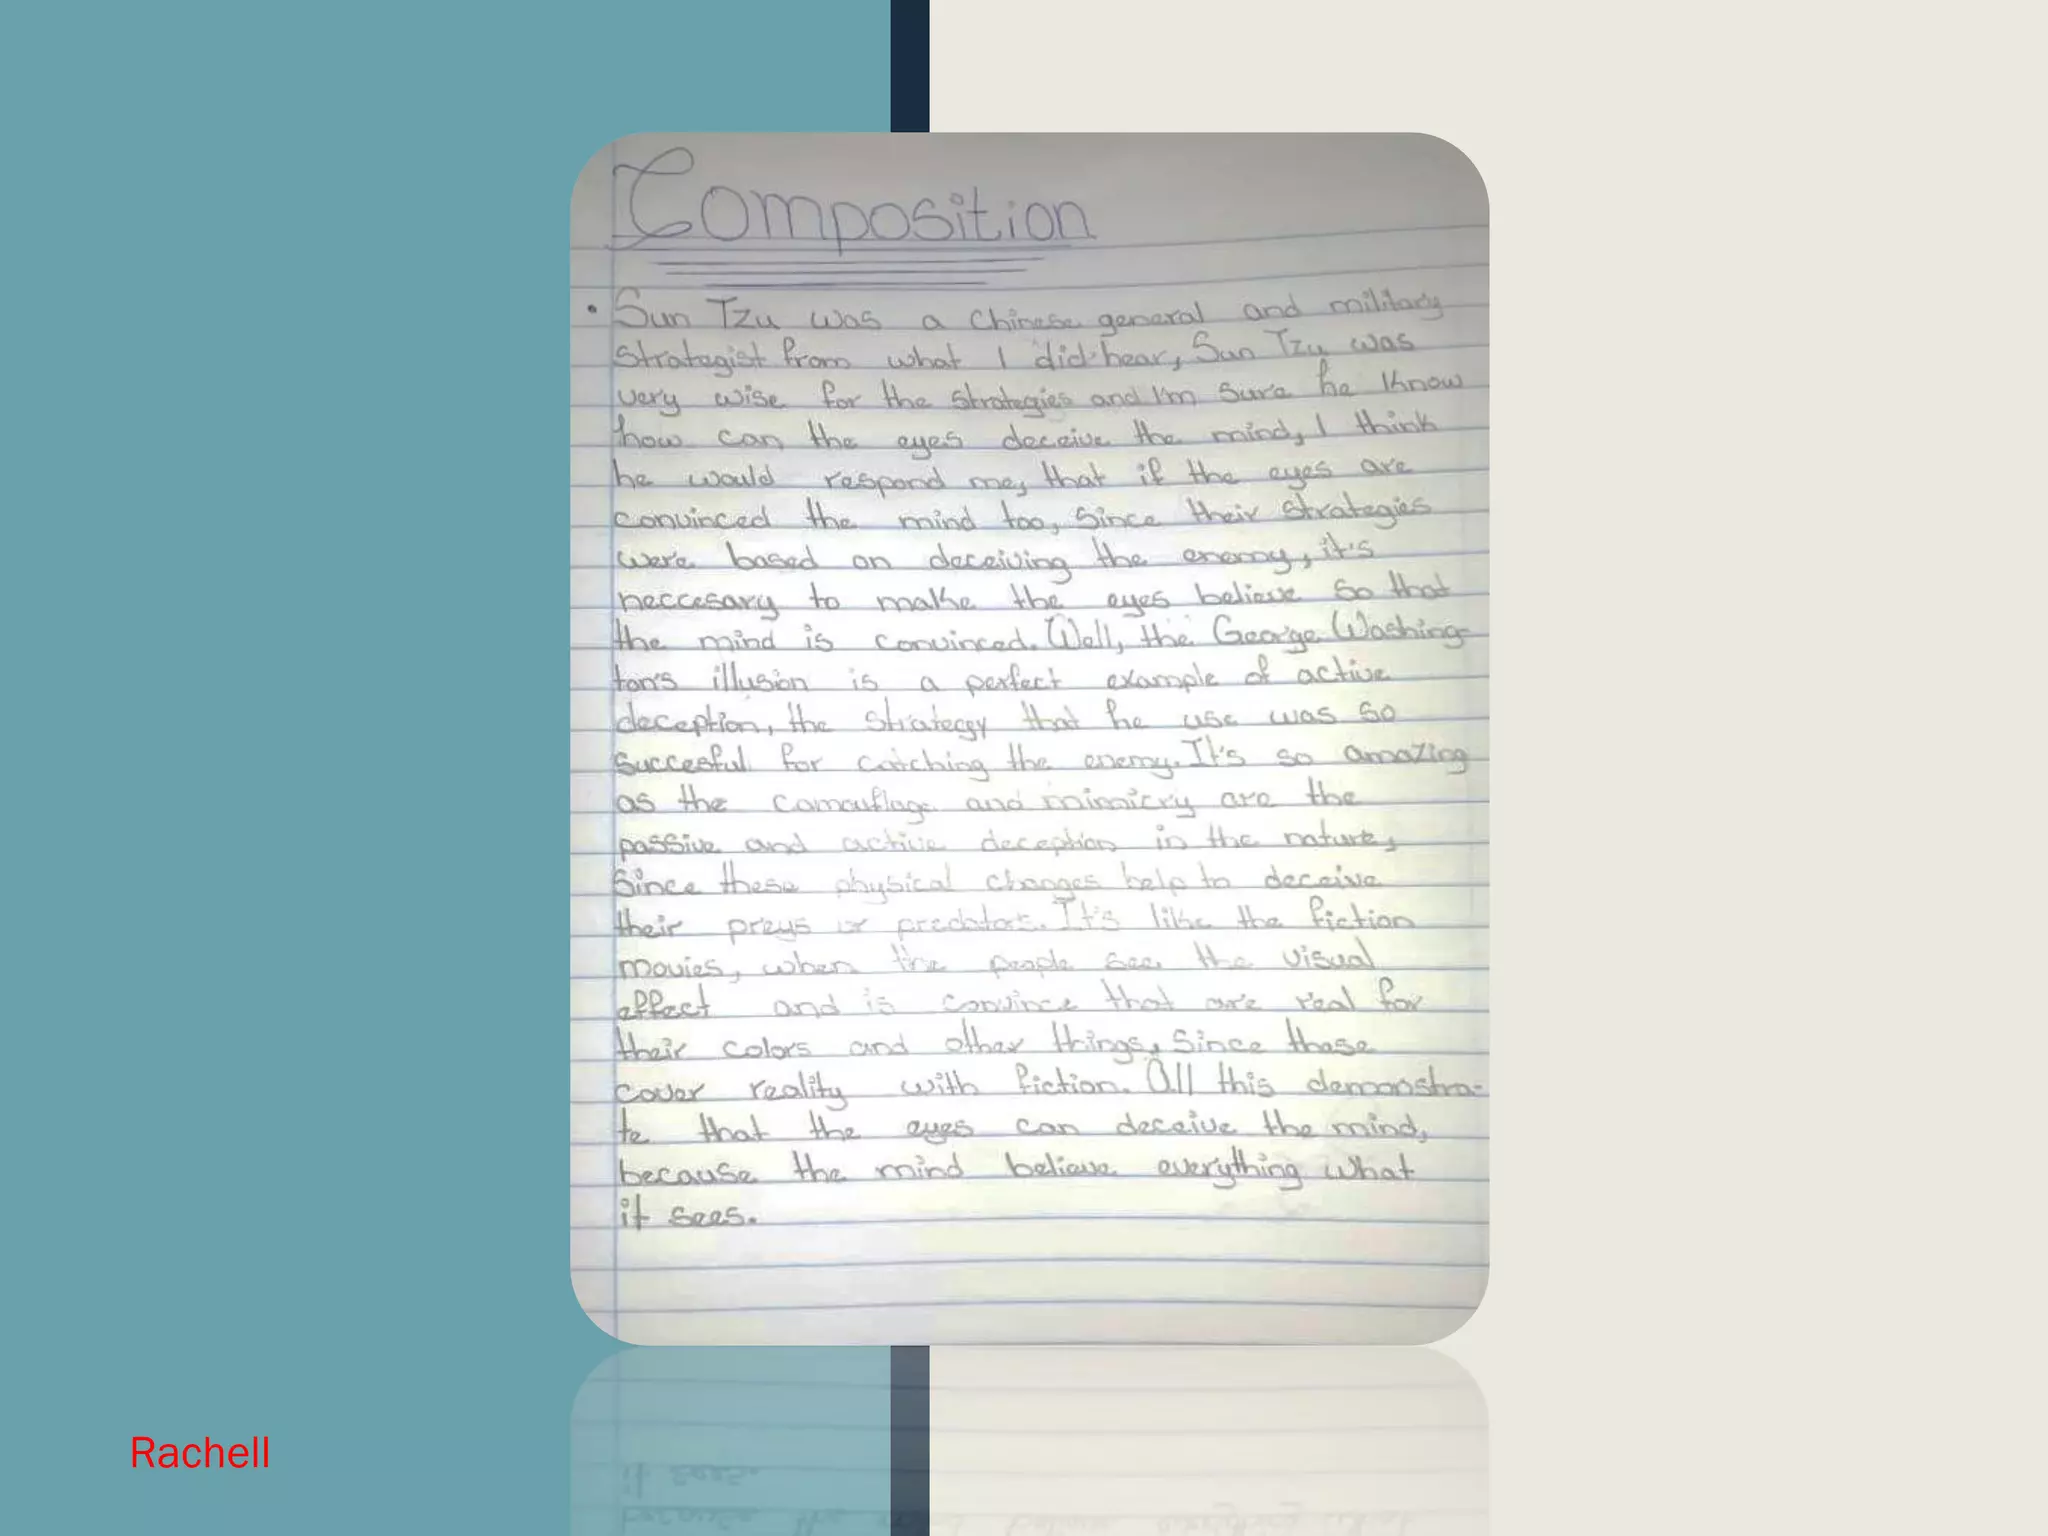 Composition
• Sun Tzu was a Chinese general and military
strategist from what I did hear, Sun Tzu was
very wise for the strategies and I'm sure he know
how can the eyes deceive the mind, I think
he would respond me, that if the eyes are
convinced the mind too, since their strategies
were based on deceiving the enemy, it's
neccesary to make the eyes believe so that
the mind is convinced. Well, the George Washing-
ton's illusion is a perfect example of active
deception, the strategy that he use was so
succesful for catching the enemy. It's so amazing
as the camouflage and mimicry are the
passive and active deception in the nature,
since these physical changes help to deceive
their preys or predators. It's like the fiction
movies, when the people see the visual
effect and is convince that are real for
their colors and other things, since these
cover reality with fiction. All this demonstra-
te that the eyes can deceive the mind,
because the mind believe everything what
it sees.
Rachell